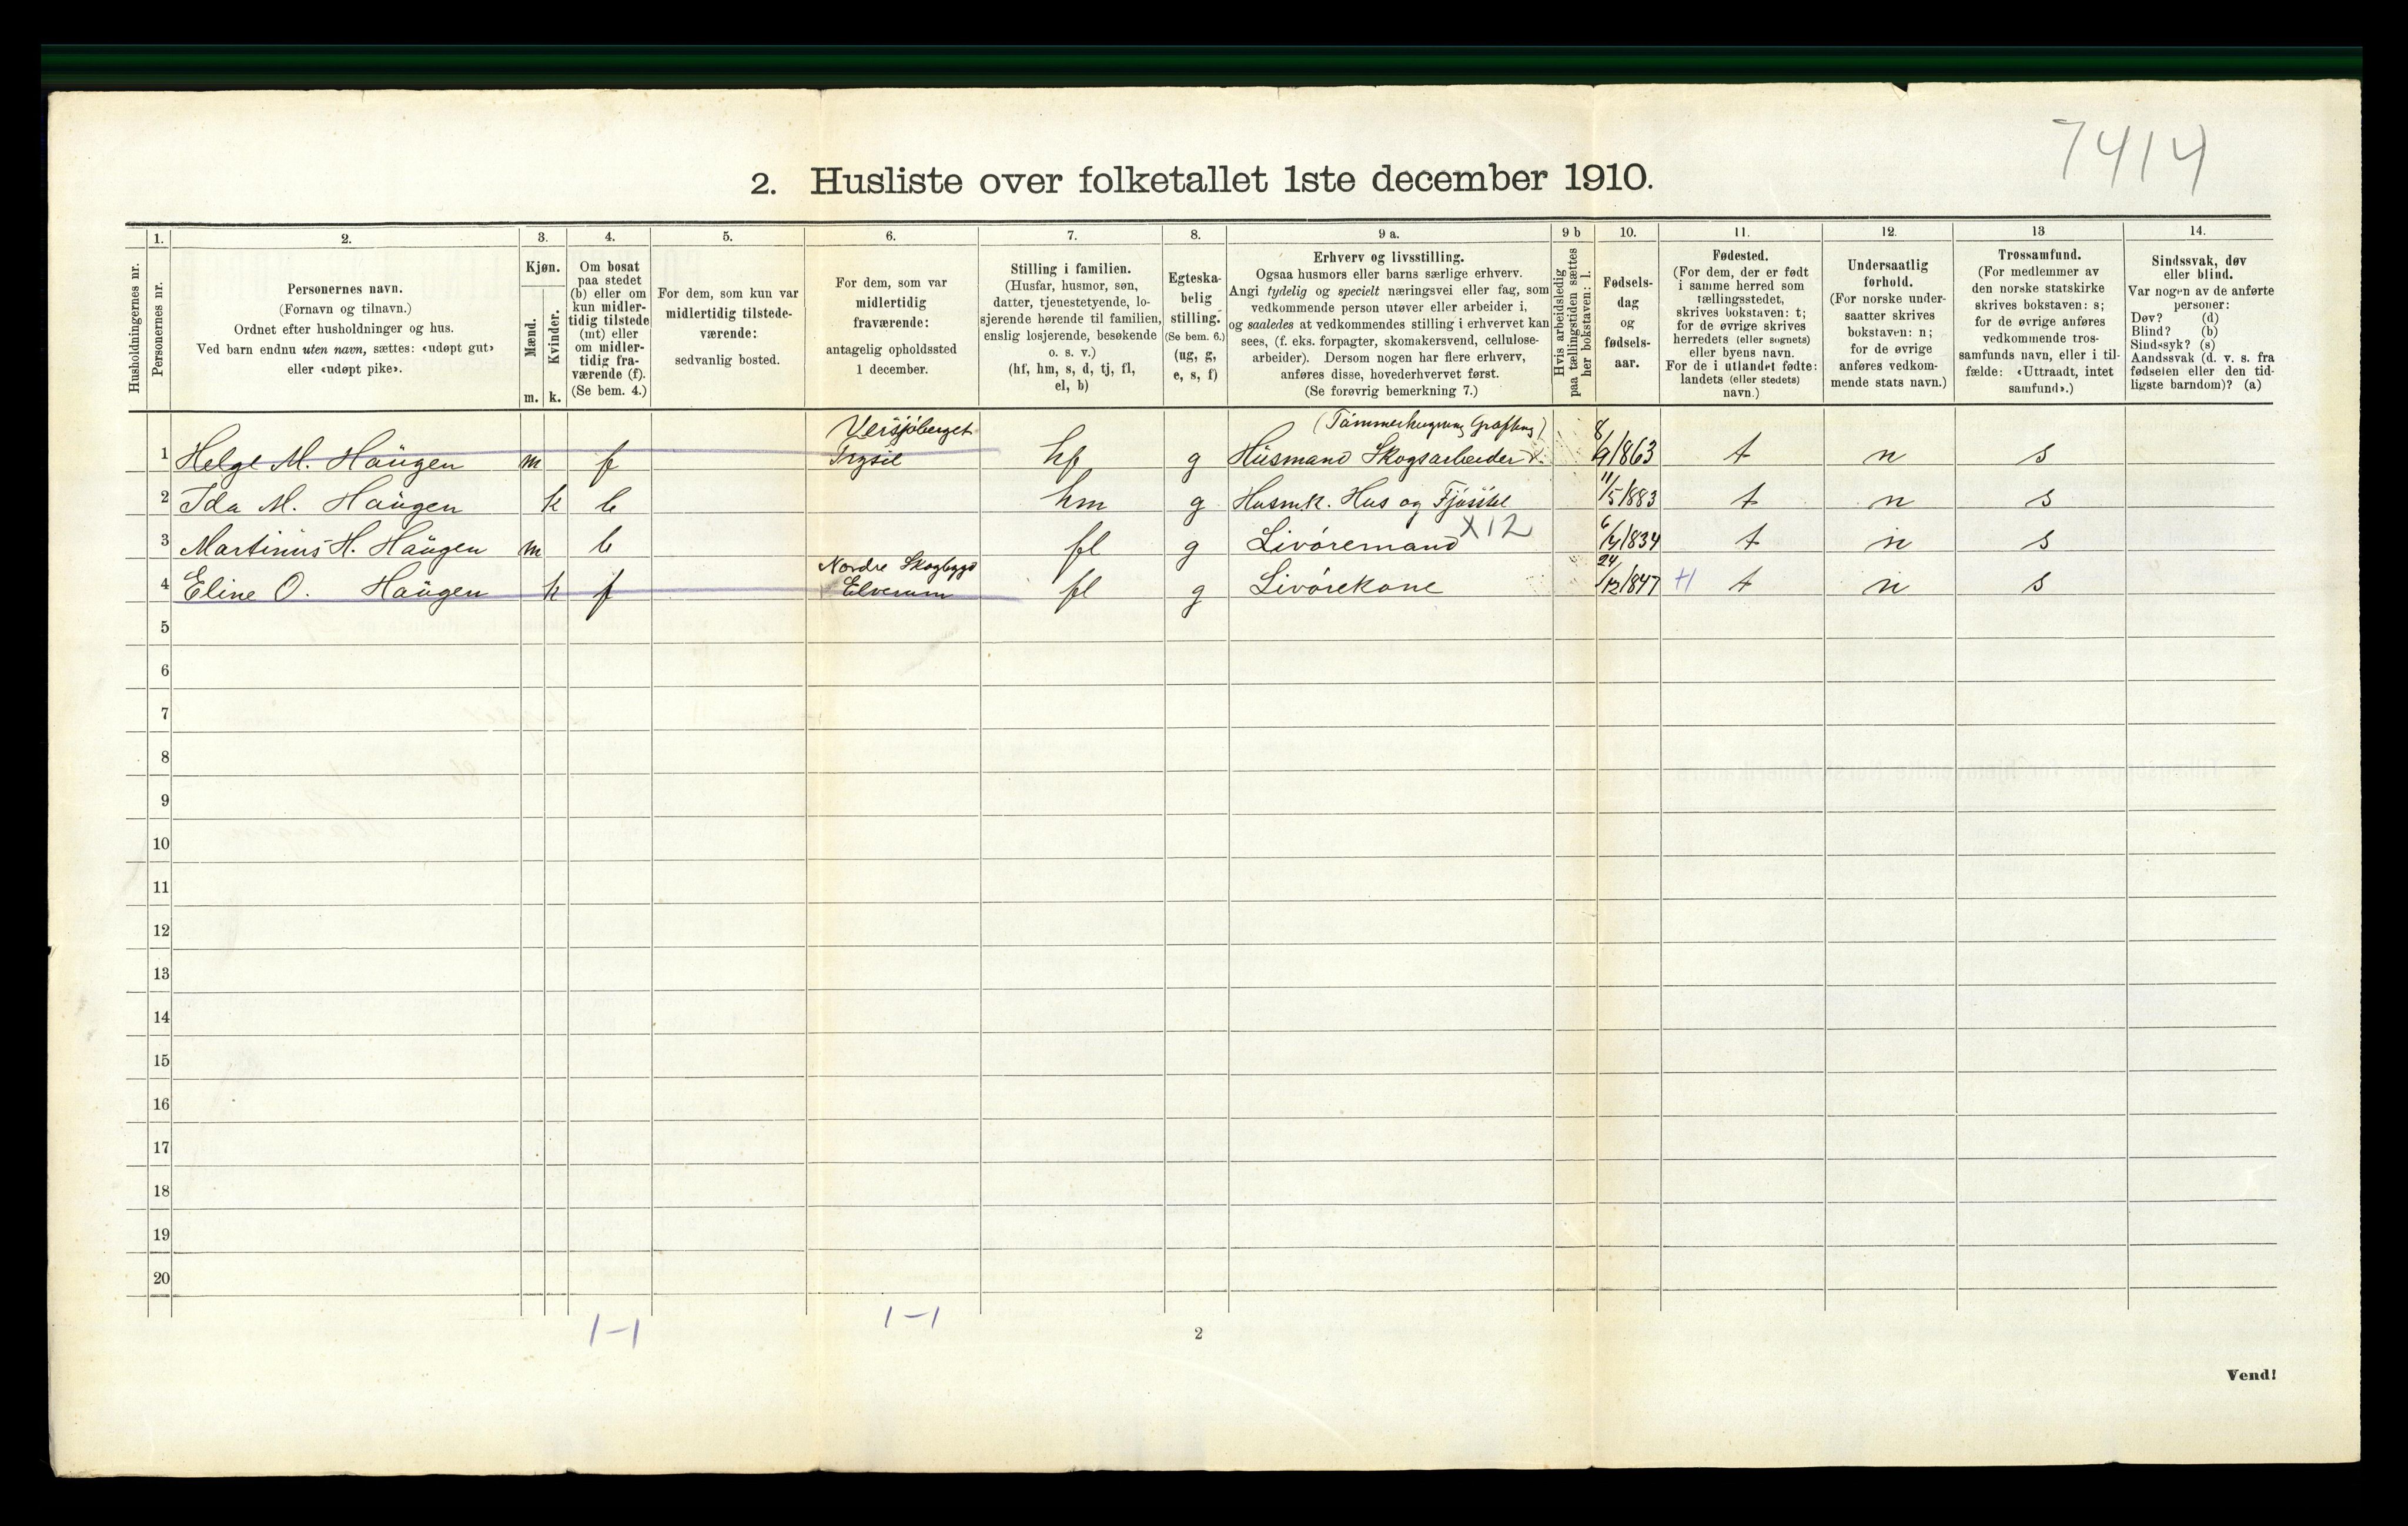 7414
2. Husliste over folketallet 1ste december 1910.
Husholdningernes nr.
1.
Personernes nr.
2.
Personernes navn.
(Fornavn og tilnavn.)
Ordnet efter husholdninger og hus.
Ved barn endnu uten navn, sættes: «udøpt gut»
eller «udøpt pike».
3.
Kjøn.
Mænd.
Kvinder.
m. k.
4.
Om bosat
paa stedet
(b) eller om
kun midler-
tidig tilstede
(mt) eller
om midler-
tidig fra-
værende (f).
(Se bem. 4.)
5.
For dem, som kun var
midlertidig tilstede-
værende:
sedvanlig bosted.
6.
For dem, som var
midlertidig
fraværende:
antagelig opholdssted
1 december.
7.
Stilling i familien.
(Husfar, husmor, søn,
datter, tjenestetyende, lo-
sjerende hørende til familien,
enslig losjerende, besøkende
o. s. v.)
(hf, hm, s, d, tj, fl,
el, b)
8.
Egteska-
belig
stilling.
(Se bem. 6.)
(ug, g,
e, s, f)
9 a.
Erhverv og livsstilling.
Ogsaa husmors eller barns særlige erhverv.
Angi tydelig og specielt næringsvei eller fag, som
vedkommende person utøver eller arbeider i,
og saaledes at vedkommendes stilling i erhvervet kan
sees, (f. eks. forpagter, skomakersvend, cellulose-
arbeider). Dersom nogen har flere erhverv,
anføres disse, hovederhvervet først.
(Se forøvrig bemerkning 7.)
9 b
Hvis arbeidsledig
paa tællingstiden sættes
her bokstaven: l.
10.
Fødsels-
dag
og
fødsels-
aar.
11.
Fødested.
(For dem, der er født
i samme herred som
tællingsstedet,
skrives bokstaven: t;
for de øvrige skrives
herredets (eller sognets)
eller byens navn.
For de i utlandet fødte:
landets (eller stedets)
navn.)
12.
Undersaatlig
forhold.
(For norske under-
saatter skrives
bokstaven: n;
for de øvrige
anføres vedkom-
mende stats navn.)
13
Trossamfund.
(For medlemmer av
den norske statskirke
skrives bokstaven: s;
for de øvrige anføres
vedkommende tros-
samfunds navn, eller i til-
fælde: «Uttraadt, intet
samfund».)
14.
Sindssvak, døv
eller blind.
Var nogen av de anførte
personer:
Døv? (d)
Blind? (b)
Sindssyk? (s)
Aandssvak (d. v. s. fra
fødselen eller den tid-
ligste barndom)? (a)
Versjøberget
1 Helge M. Haugen m f Trysil hf g Husmand Skogsarbeider 8/9 1863 t n s
2 Ida M. Haugen k b hm g Husmk. Hus og Fjøsstel 11/5 1883 t n s
X12
3 Martinus H. Haugen m b fl g Livøremand 6/4 1834 t n s
Nordre Skogbygd
4 Eline O. Haugen k f Elverum fl g Livørekone 24/12 1847 t n s
5
6
7
8
9
10
11
12
13
14
15
16
17
18
19
20
1-1 1-1
2
Vend!